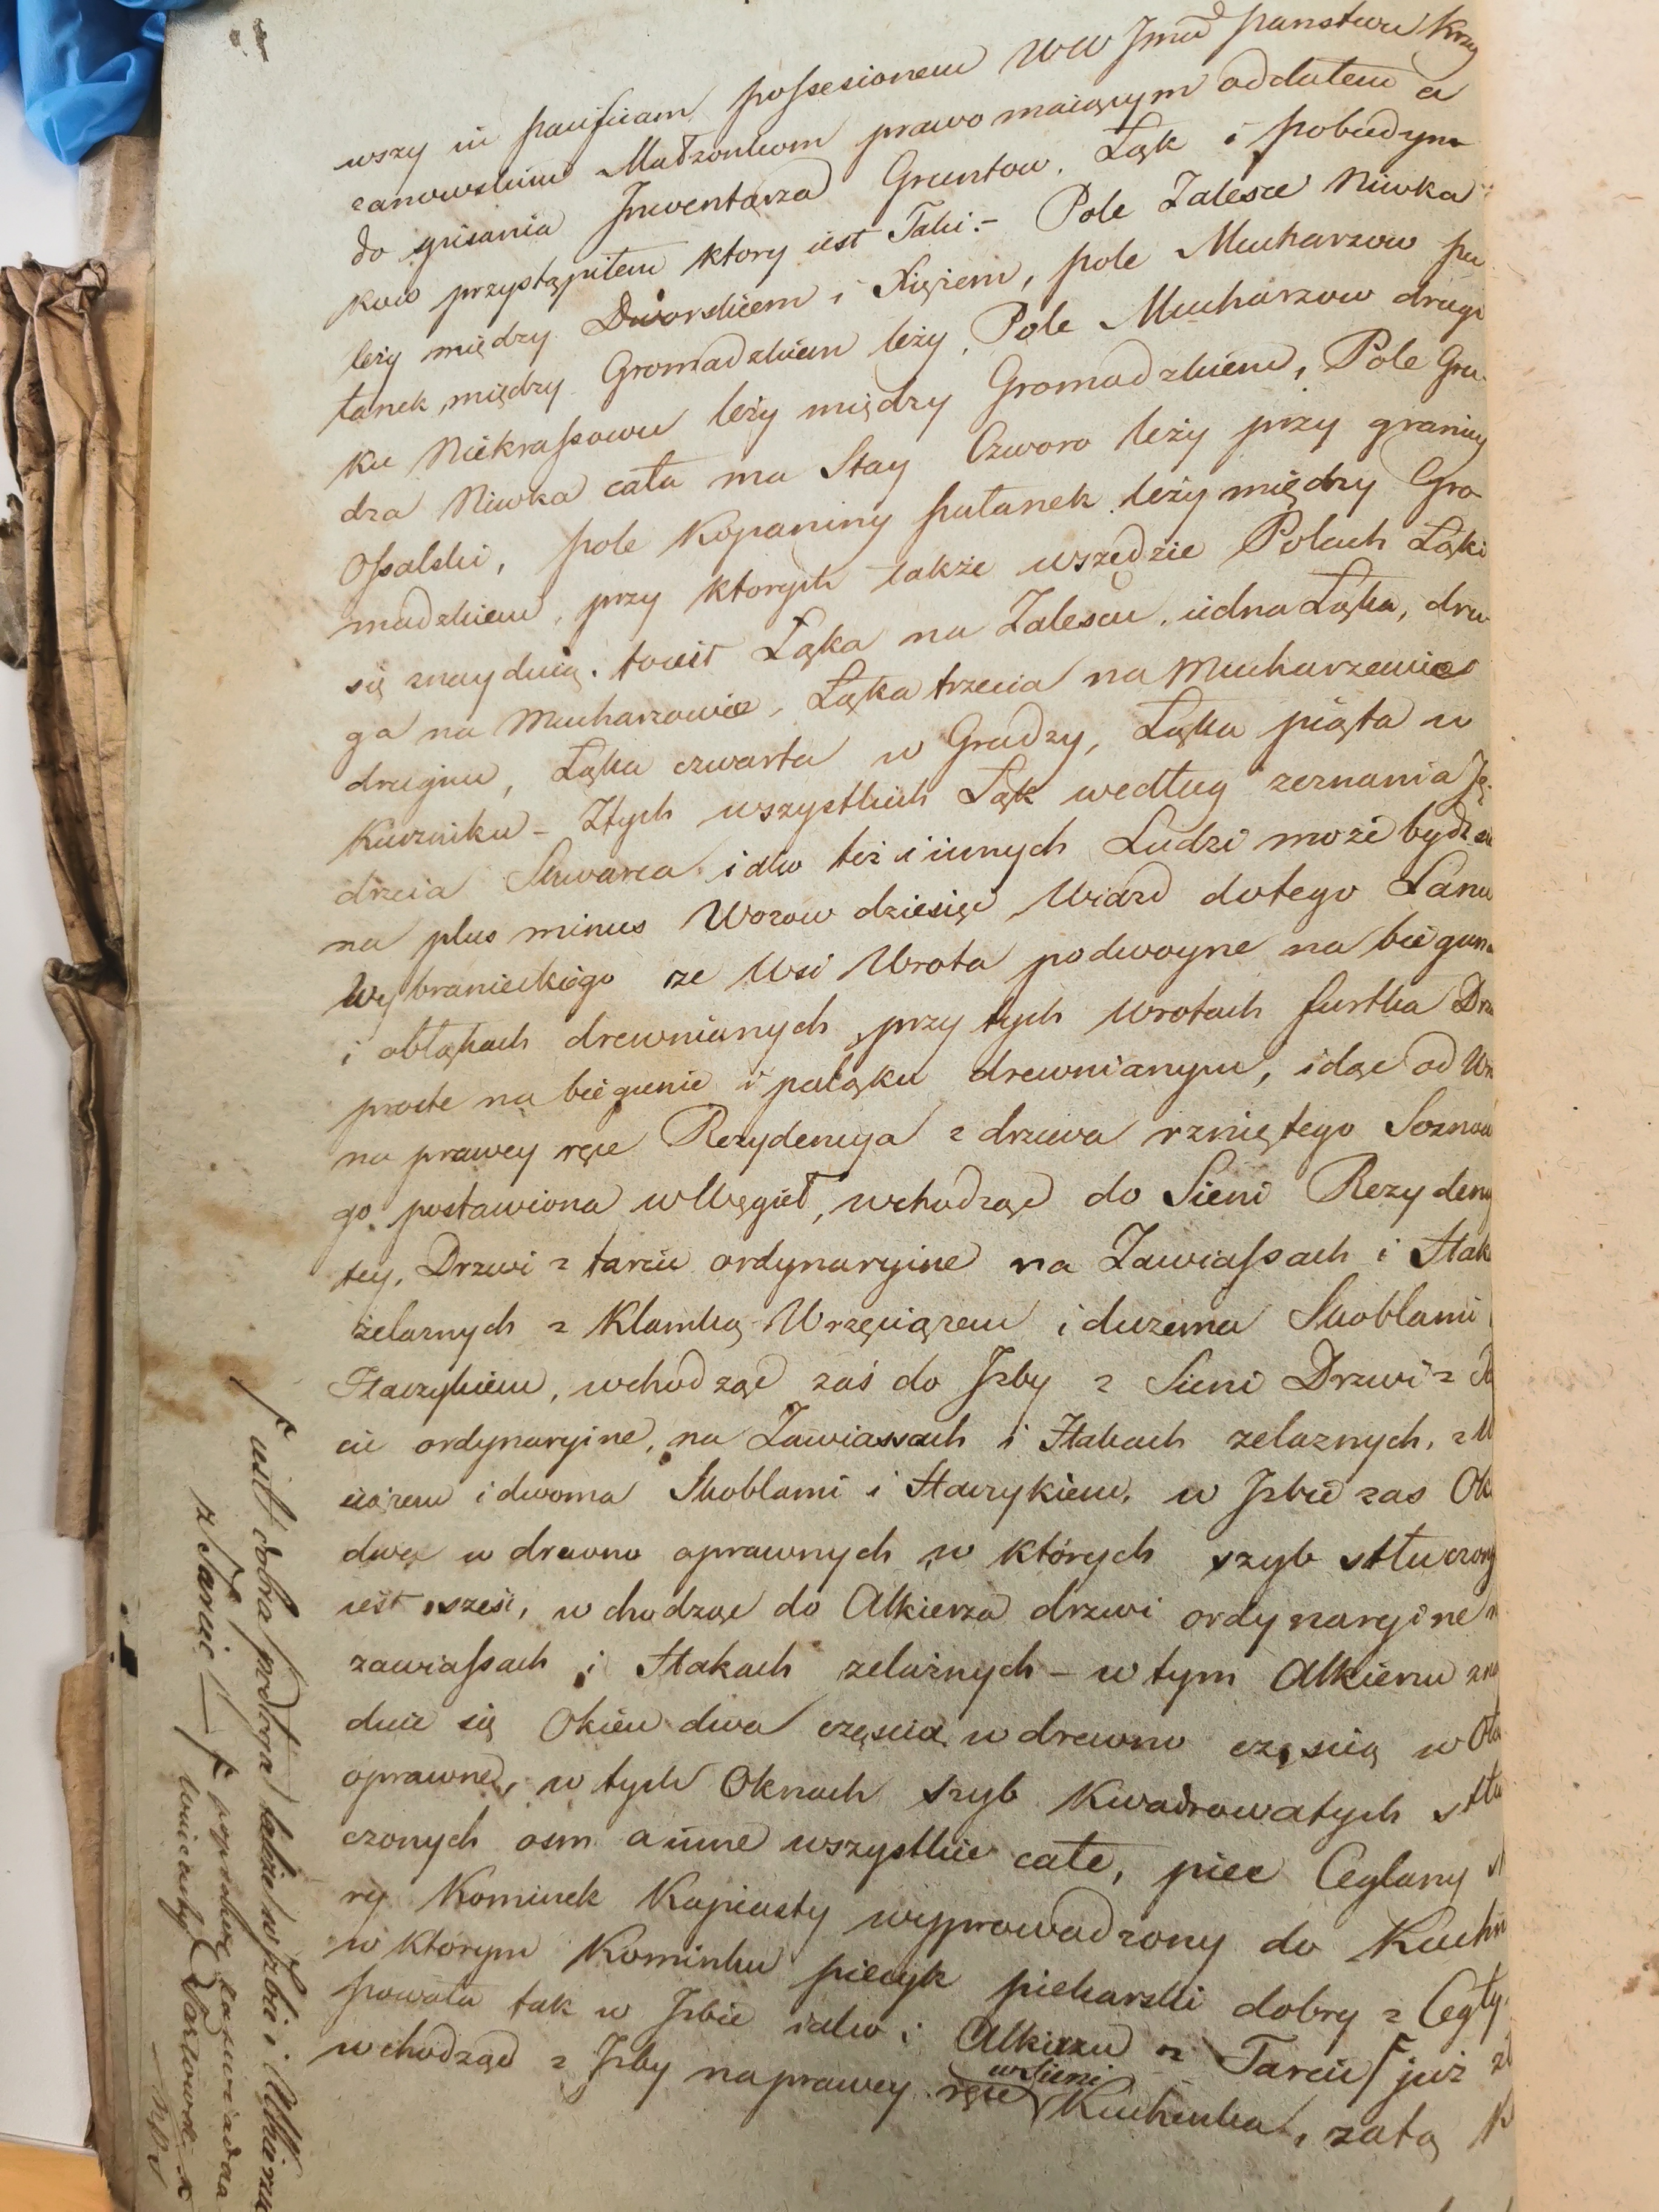 wszy in pacificam possesionem WW Jmć Panstwu Krzy
zanowskim Małżonkom prawo maiącym oddałem a
do spisania Inwentarza Gruntow, Łąk i pobudyn
kow przystąpiłem ktory iest Taki:- Pole Zalesce Niwka
leży między Dworskiem i Xięzem, pole Mucharzow pu
łanek między Gromadzkiem leży, Pole Mucharzow drugi
ku Niekrassowu leży między Gromadzkiem, Pole Gru
dza Niwka cała ma Stay Czworo leży przy granicy
Ossalski, pole Kopaniny pułanek leży między Gro
madzkiem, przy ktorych także wszędzie Polach Łąki
się znayduią. toiest Łąka na Zalescu, iedna Łąka, dru
ga na Mucharzowie, Łąka trzecia na Mucharzewie
drugim, Łąka czwarta w Grudzy, Łąka piąta w
Kurzniku - Ztych wszystkich Łąk według zeznania Ję
drzeia Skwarca iako też i innych Ludzi może bydz sia
na plus minus Wozow dziesięć Wiazd dotego Łanu
Wybranieckiego ze Wsi Wrota podwoyne na biegun
i obłąkach drewnianych, przy tych Wrotach furtka Drz
proste na biegunie i pałąku drewnianym, idąc od Wr
na prawey ręce Rezydencya z drzewa rzniętego Sosnow
go postawiona wWęgieł, wchodząc do Sieni Rezydenc
tey, Drzwi z tarcic ordynaryine na Zawiassach i Hak
żelaznych z Klamką Wrzęciązem i dwiema Skoblami
Haczykiem, wchodząc zaś do Izby z Sieni Drzwi z Ta
cic ordynaryine, na Zawiassach i Hakach żelaznych, z W
ciązem i dwoma Skoblami i Haczykiem, w Izbie zas Ok
dwa w drewno oprawnych w których szyb stłuczony
iest sześć, wchodząc do Alkierza drzwi ordynaryine n
zawiassach i Hakach żelaznych - w tym Alkierzu zna
duie się Okien dwa częscią w drewno częscią w Oło
oprawne, w tych Oknach szyb Kwadrowatych stłu
czonych osm a inne wszystkie całe, piec Ceglany st
ry Kominek Kapiasty wyprowadzony do Kuchn
w ktorym Kominku piecyk piekarski dobry z Cegły,
powała tak w Izbie iako i Alkierzu z Tarcic ƒ już
wchodząc z Izby naprawey ręce w Sieni Kuchenka, zatą K
ƒ iest dobra podłoga także w Izbie i Alkierzu
z Tarcic — ƒ poprawkę zaswiadczam